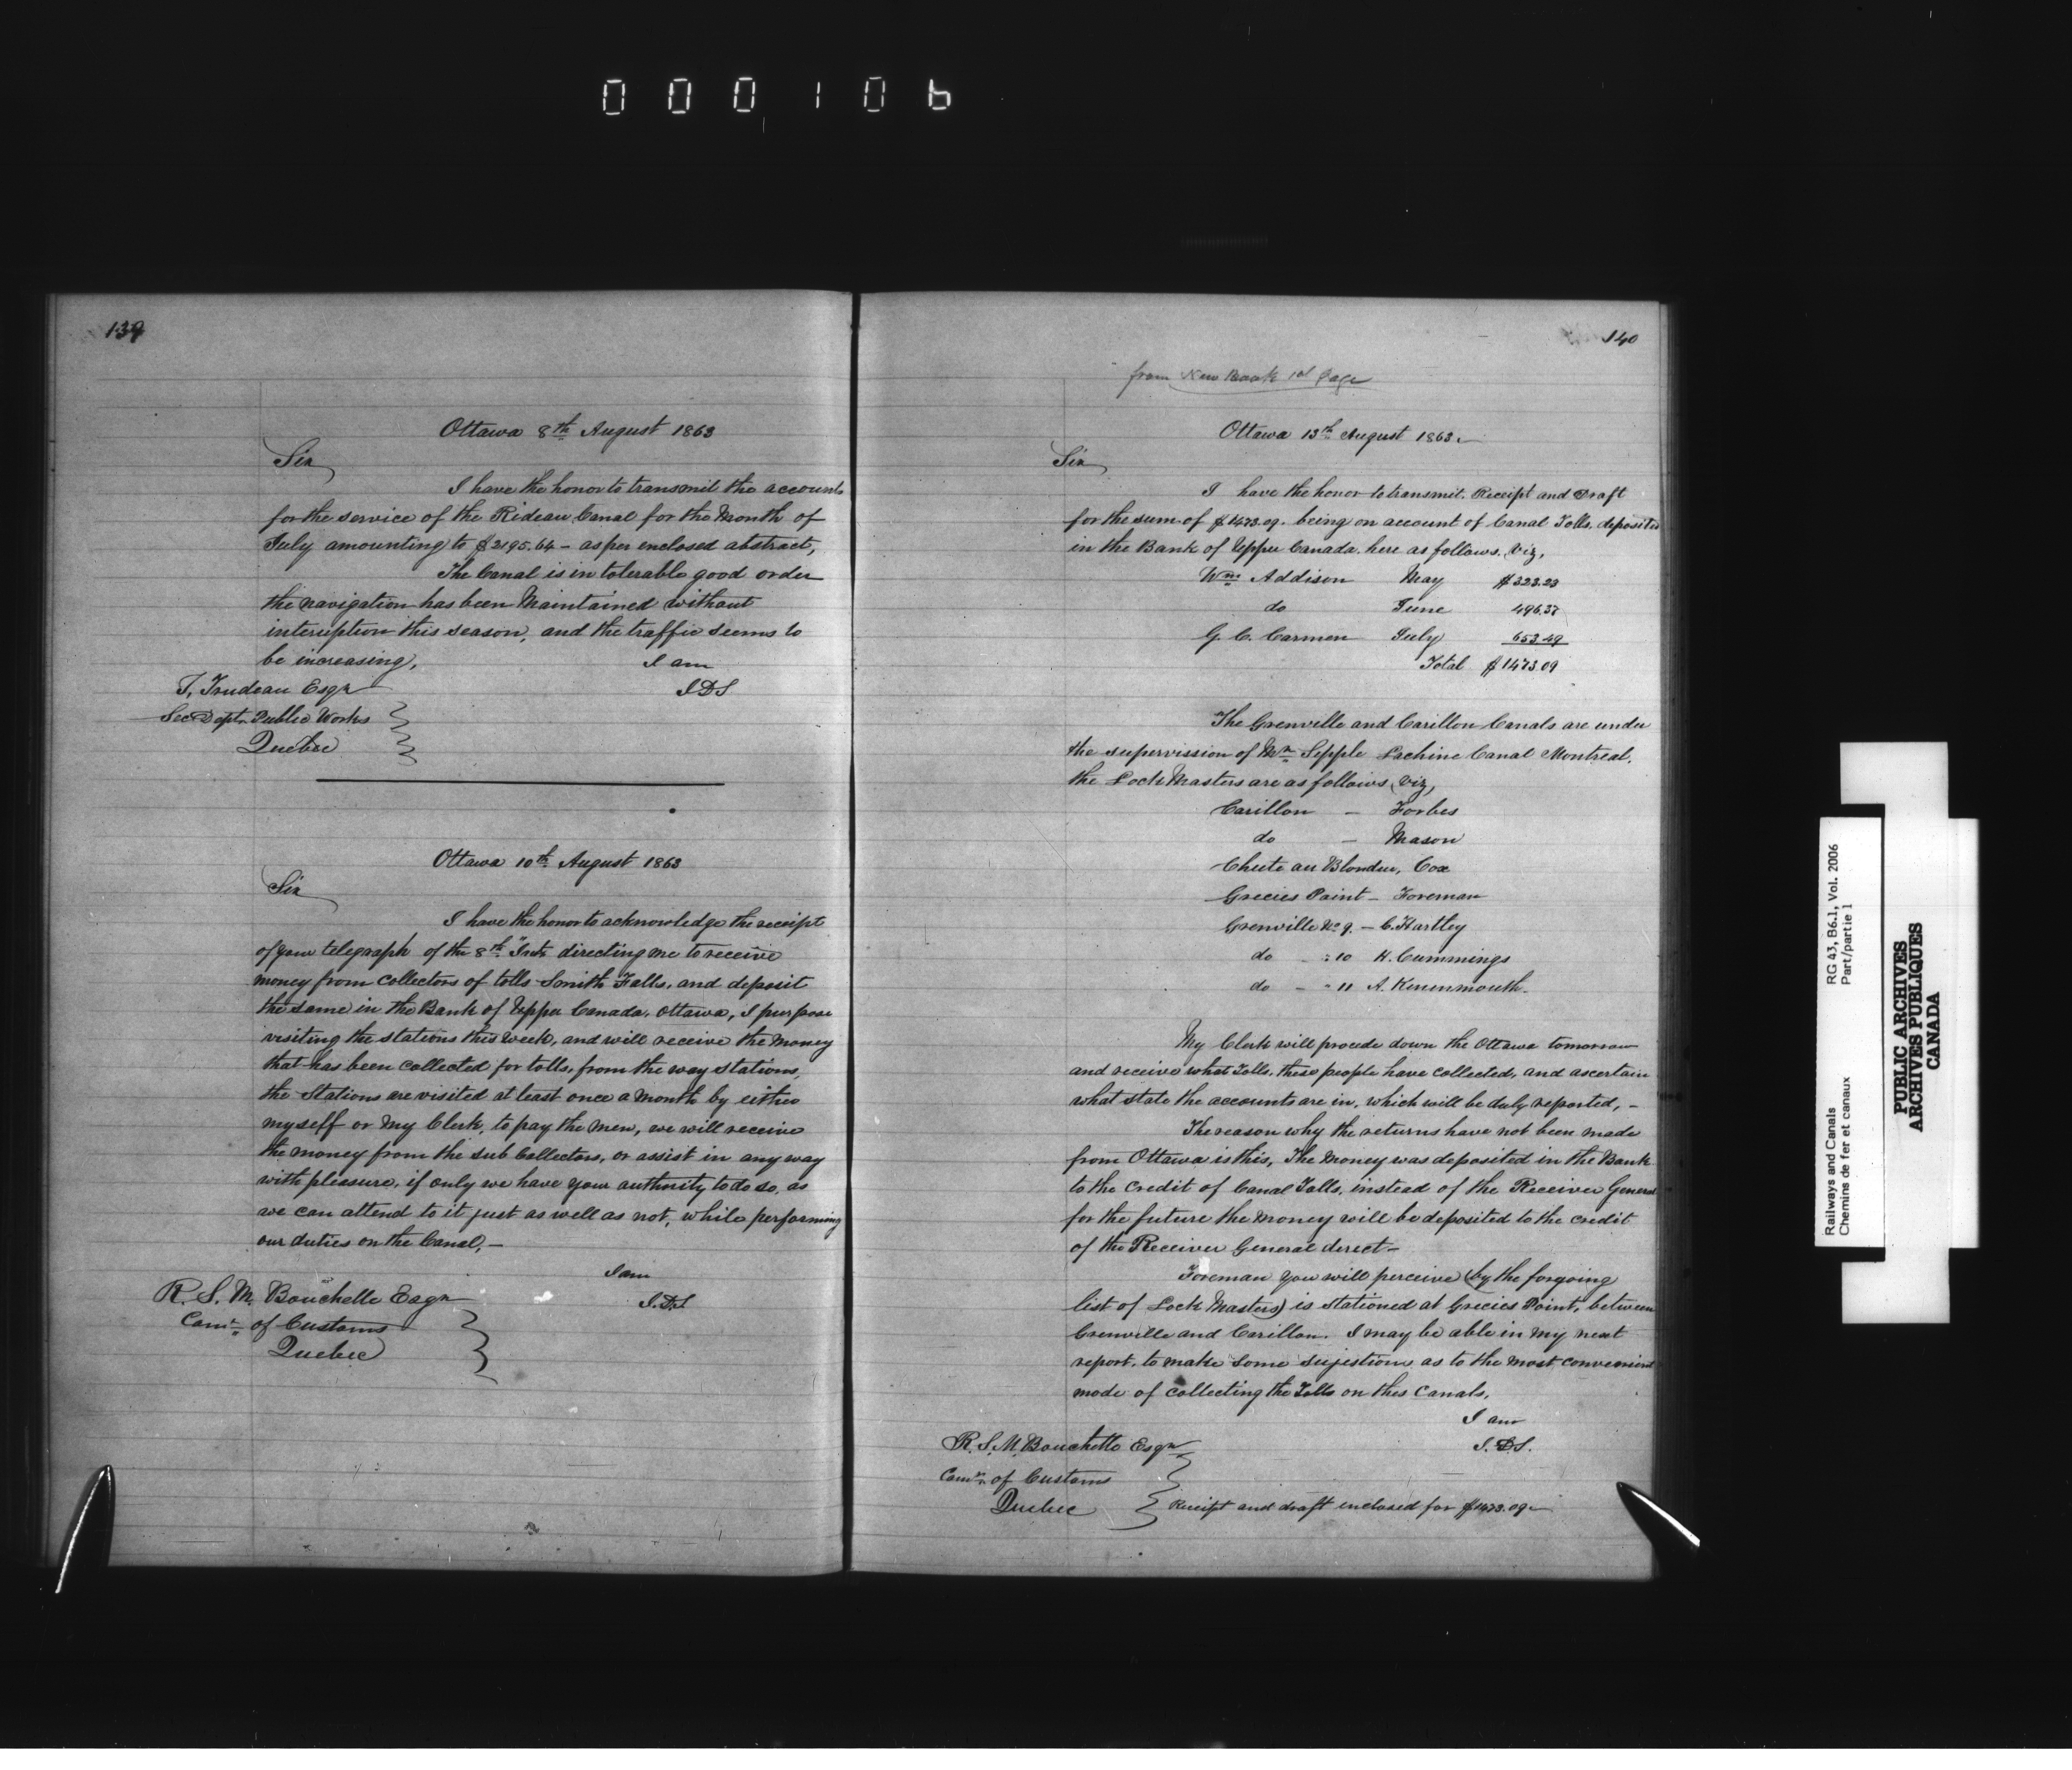 000106
139
Ottawa 8th August 1863
Sir
I have the honor to transmit the accounts
for the service of the Rideau Canal for the Month of
July amounting to $2195.64 - as per enclosed abstract,
The Canal is in tolerable good order
the navigation has been Maintained without
interuption this season, and the traffic seems to
be increasing,
I am
T. Trudeau Esqr
J.D.S
Sec Dept. Public Works
Quebec
Ottawa 10th August 1863
Sir
I have the honor to acknowledge the receipt
of your telegraph of the 8th Inst. directing me to receive
money from Collectors of tolls Smith Falls, and deposit
the same in the Bank of Upper Canada, Ottawa, I purpose
visiting the stations this week, and will receive the money
that has been collected for tolls, from the way stations,
the Stations are visited at least once a month by either
myself or My Clerk, to pay the men, we will receive
the money from the Sub Collectors, or assist in any way
with pleasure, if only we have your authority to do so, as
we can attend to it just as well as not, while performing
our duties on the Canal, -
I am
R. S. M. Bouchette Esqr
J.D.S
Comr. of Customs
Quebec
140
from New Book 1st Page
Ottawa 13th August 1863.
Sir
I have the honor to transmit. Receipt and Draft
for the sum of $1473.09. being on account of Canal Tolls, deposited
in the Bank of Upper Canada. here as follows. Viz,
Wm Addison May $323.23
do June 496.37
G. C. Carmen July 653.49
Total $1473.09
The Grenville and Carillon Canals are under
the supervission of Mr Sipple Lachine Canal Montreal.
the Lock Masters are as follows, Viz,
Carillon - Forbes
do - Mason
Chute au Blondeu, Cox
Grecies Point - Foreman
Grenville No 9. - C. Hartley
do - " 10 H. Cummings
do - " 11 A. Kenenmouth
My Clerk will procede down the Ottawa tomorrow
and receive what Tolls, these people have collected, and ascertain
what state the accounts are in, which will be duly reported, -
The reason why the returns have not been made
from Ottawa is this, The Money was deposited in the Bank
to the Credit of Canal Tolls, instead of the Receiver General
for the future the money will be deposited to the credit
of the Receiver General direct -
Foreman you will perceive (by the forgoing
list of Lock Masters) is stationed at Grecies Point, between
Grenville and Carillon. I may be able in my next
report, to make some sujestions as to the most convenient
mode of collecting the Tolls on thes Canals,
I am
R. S. M. Bouchette Esqr
J.D.S.
Comr. of Customs
Quebec
Receipt and draft enclosed for $1473.09
Railways and Canals RG 43, B6.1, Vol. 2006
Chemins de fer et canaux Part/partie 1
PUBLIC ARCHIVES
ARCHIVES PUBLIQUES
CANADA